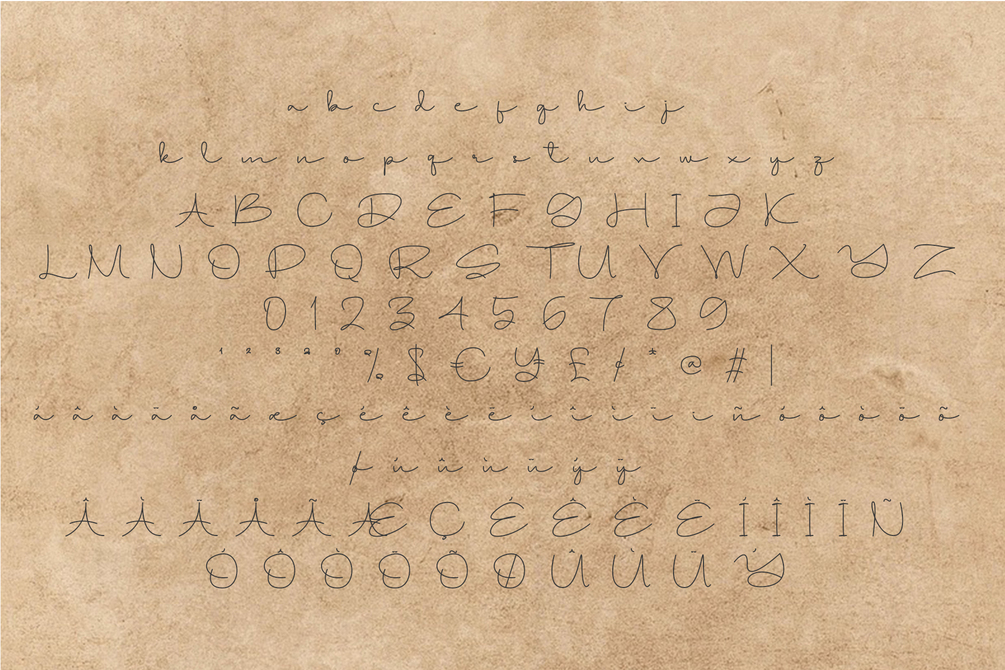 a b c d e f g h i j
k l m n o p q r s t u v w x y z
A B C D E F G H I J K
L M N O P Q R S T U V W X Y Z
0 1 2 3 4 5 6 7 8 9
¹ ² ³ % $ € ¥ £ ¢ * @ # |
á â à ä å ã æ ç é ê è ë í î ì ï ı ñ ó ô ò ö õ
ø ú û ù ü ý ÿ
Â À Ä Å Ã Æ Ç É Ê È Ë Í Î Ì Ï Ñ
Ó Ô Ò Ö Õ Ø Û Ù Ü Ý